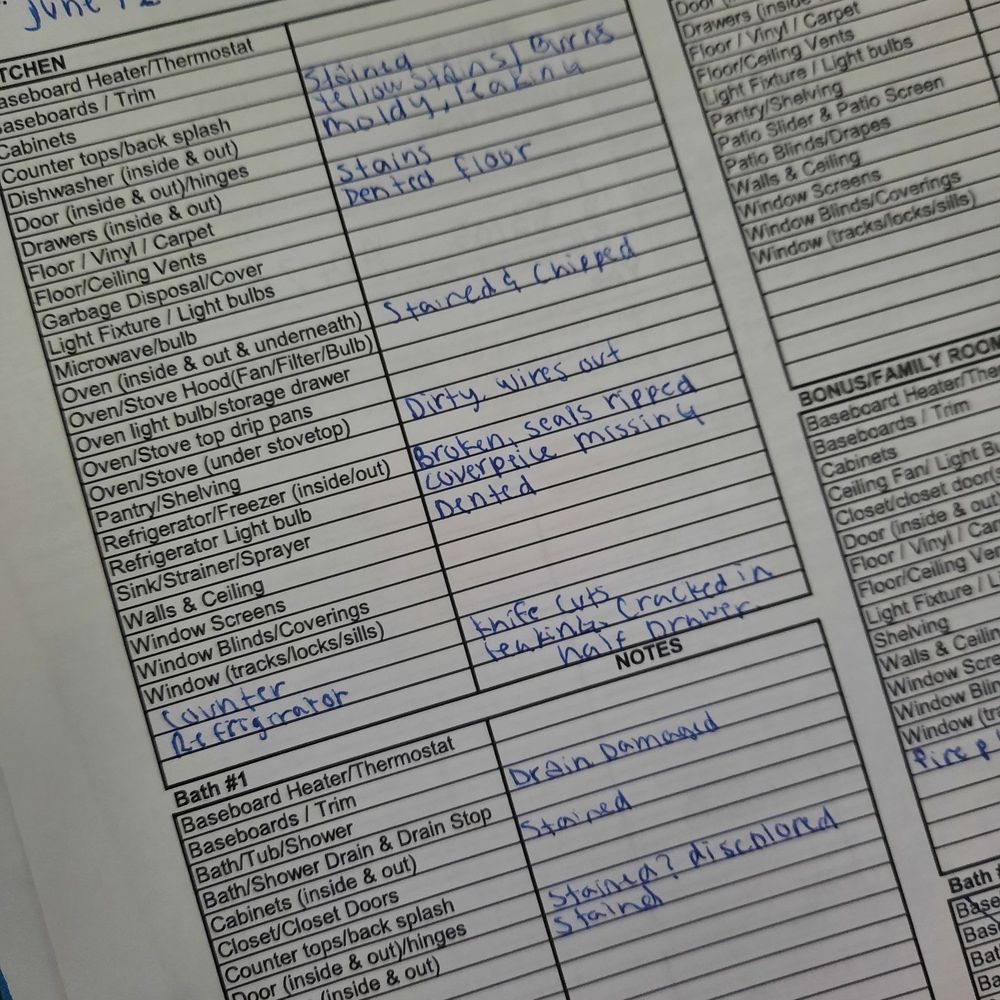 June
TCHEN
aseboard Heater/Thermostat
aseboards / Trim
Cabinets Stained
Counter tops/back splash Yellow stains/ Burns
Dishwasher (inside & out) moldy, leaking
Door (inside & out)/hinges
Drawers (inside & out) Stains
Floor / Vinyl / Carpet Dented floor
Floor/Ceiling Vents
Garbage Disposal/Cover
Light Fixture / Light bulbs
Microwave/bulb
Oven (inside & out & underneath) Stained & Chipped
Oven/Stove Hood(Fan/Filter/Bulb)
Oven light bulb/storage drawer
Oven/Stove top drip pans Dirty, wires out
Oven/Stove (under stovetop)
Pantry/Shelving
Refrigerator/Freezer (inside/out) Broken, seals ripped
Refrigerator Light bulb coverpeice missing
Sink/Strainer/Sprayer Dented
Walls & Ceiling
Window Screens
Window Blinds/Coverings
Window (tracks/locks/sills)
Counter Knife cuts
Refrigirator leaking, cracked in
half Drawer
NOTES
Bath #1
Baseboard Heater/Thermostat
Baseboards / Trim
Bath/Tub/Shower Drain Damaged
Bath/Shower Drain & Drain Stop
Cabinets (inside & out) Stained
Closet/Closet Doors
Counter tops/back splash Stained? discolored
Door (inside & out)/hinges Stained
(inside & out)
Door (insid
Drawers (inside
Floor / Vinyl / Carpet
Floor/Ceiling Vents
Light Fixture / Light bulbs
Pantry/Shelving
Patio Slider & Patio Screen
Patio Blinds/Drapes
Walls & Ceiling
Window Screens
Window Blinds/Coverings
Window (tracks/locks/sills)
BONUS/FAMILY ROOM
Baseboard Heater/The
Baseboards / Trim
Cabinets
Ceiling Fan/ Light Bu
Closet/closet door(
Door (inside & out
Floor / Vinyl / Car
Floor/Ceiling Ve
Light Fixture / L
Shelving
Walls & Ceilin
Window Scre
Window Blin
Window (tra
fire p
Bath #
Base
Bas
Bat
Ba